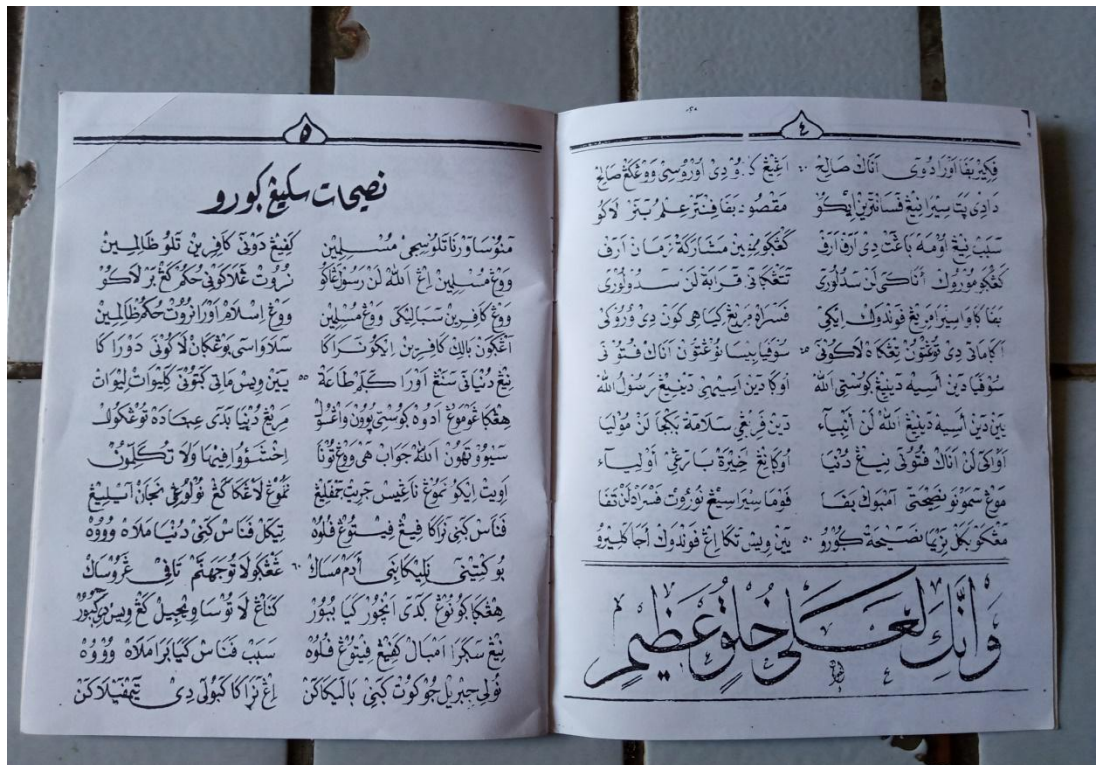 ٤
فكير بفا اورا دوى اناك صالح ٤٠ اڠيڠ دى اوروسى ووڠكڠ صالح
دادى پتا سيرا نيڠ فسانترين ايكو مقصود بفا فنتر علم بنر لاكو
سبب نيڠ اومه باڠت دى ارف ارف كڠكو ممفين مشاركة زمان ارف
كڠكو موروك اناكى لن سدلورى تتڠكانى قرابة لن سدولورى
بفا كاواسيرا مريڠ فوندوك ايكى فسراه مريڠ كياهى كون دى وروكى
اكامانى دى توڠتون بڠكا دلاكونى ٤٥ سوفيا بيسا نوڠتون اناك فتونى
سوفيا دين اسيه دينيڠ كوستى الله اوكا دين اسيهى دينيڠ رسول الله
يين دين اسيه دينيڠ الله لن أنبياء دين فريڠى سلامة بكجا لن موليا
اواكى لن اناك فتونى نيڠ دنيا اوكا نيڠ اخيرة بارڠى أولياء
موڠ سمونو نصيحتى امبوك بفا فوما سيرا سيڠ نوروت فسراد لن تفا
مڠكو بكل تريما نصيحة كورو ٥٠ يين ويس تكا اڠ فوندوك اجا كليرو
وَإِنَّكَ لَعَلى خُلُقٍ عَظِيمٍ
٥
نصيحات سكيڠ كورو
منوسا ورنا تلو سيجى مسلمين كفيڠ دونى كافرين تلو ظالمين
ووڠ مسلمين اڠ الله لن رسول ڠاكو نوروت ڠلاكونى حكم كڠ بنر لاكو
ووڠ كافرين سباليكى ووڠ مسلمين ووڠ اسلام اورا نروت حكم ظالمين
اڠكون باليك كافرين ايكو نراكا سلاواسى بوڠكان لاكونى دوراكا
نيڠ دنيانى سنڠ اورا كلم طاعة ٥٥ يين ويس ماتى كتونى كليوات ليوات
هڠكا ڠوموڠ ادوه كوستى پوون واڠسول مريڠ دنيا بدى عباده توڠكول
سيوو تهون الله جواب هى ووڠ تونا اخْسَؤُوا فِيهَا وَلَا تُكَلِّمُونِ
اويت ايكو نموڠ ناڠيس جريت جمفليڠ نموڠ لاڠكا كڠ نولوڠى نجان ايليڠ
فناس كنى نراكا فيڠ فيتوڠ فلوه تيكل فناس كنى دنيا ملاه وووه
بوكتينى نليكا نبى أدم مساك ٦٠ ڠڠكو لاتو جهنم تافى ڠروساك
هڠكا كونوڠ كدى انچور كيا بوبور كناڠ لاتو ساويجيل كڠ ويس دى كبور
نيڠ سكرا امبال كفيڠ فيتوڠ فلوه سبب فناس كيا برا ملاه وووه
نولى جبريل جوكوت كنى باليكاكن اڠ نراكا كبولى دى تمفيلاكن